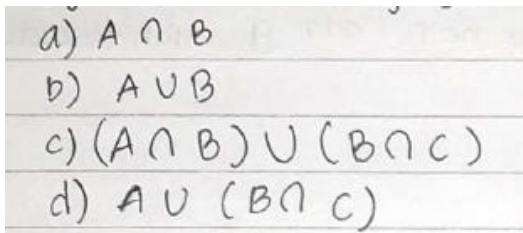 a) A ∩ B
b) A ∪ B
c) (A ∩ B) ∪ (B ∩ C)
d) A ∪ (B ∩ C)